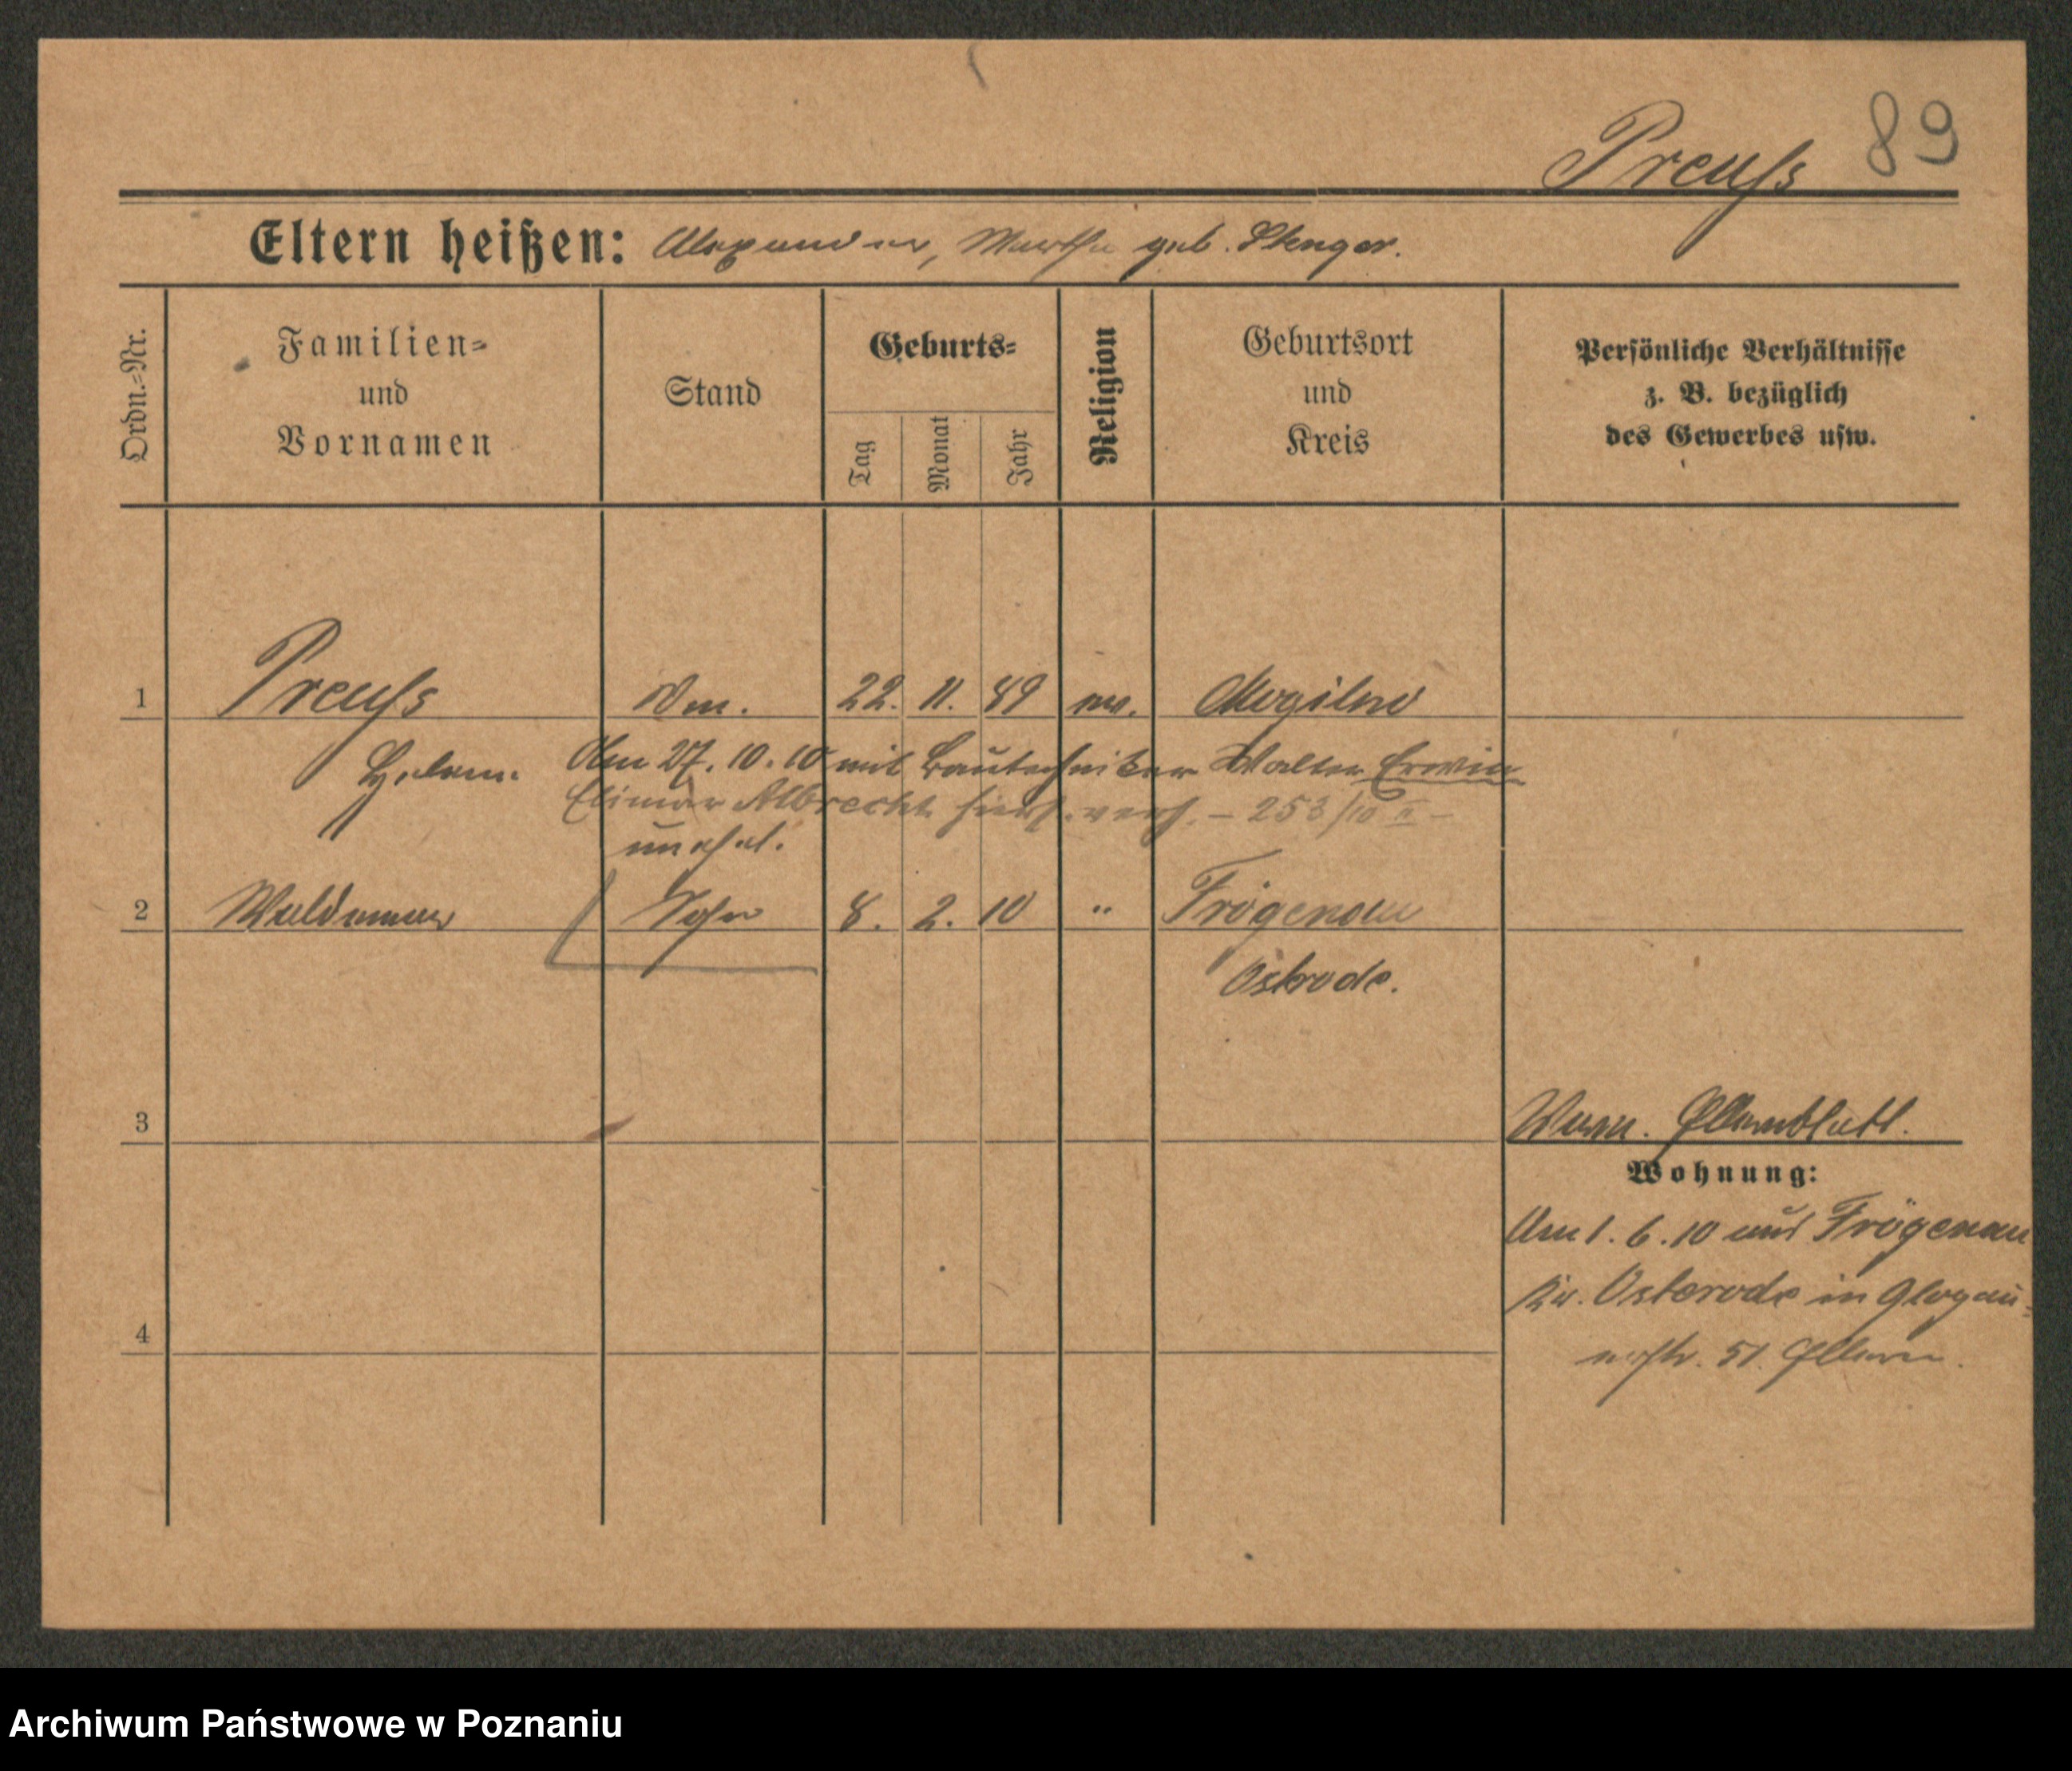 Preuß 89
Eltern heißen: Alexander, Martha geb. Stenger.
Ordn.-Nr.
Familien-
und
Vornamen
Stand
Geburts-
Tag
Monat
Jahr
Religion
Geburtsort
und
Kreis
Persönliche Verhältnisse
z. B. bezüglich
des Gewerbes usw.
1 Preuß 22. 11. 89 ev. Mogilno
Helene Am 27. 10. 10 mit Bautechniker Walter Erwin
Elimar Albrecht hiers. verh. – 253/10 II –
unehel.
2 Waldemar Sohn 8. 2. 10 " Frögenau
Osterode.
3
Wwn. Elternblatt.
Wohnung:
Am 1. 6. 10 aus Frögenau
Kr. Osterode in Glogau-
erstr. 51. Eltern.
4
Archiwum Państwowe w Poznaniu